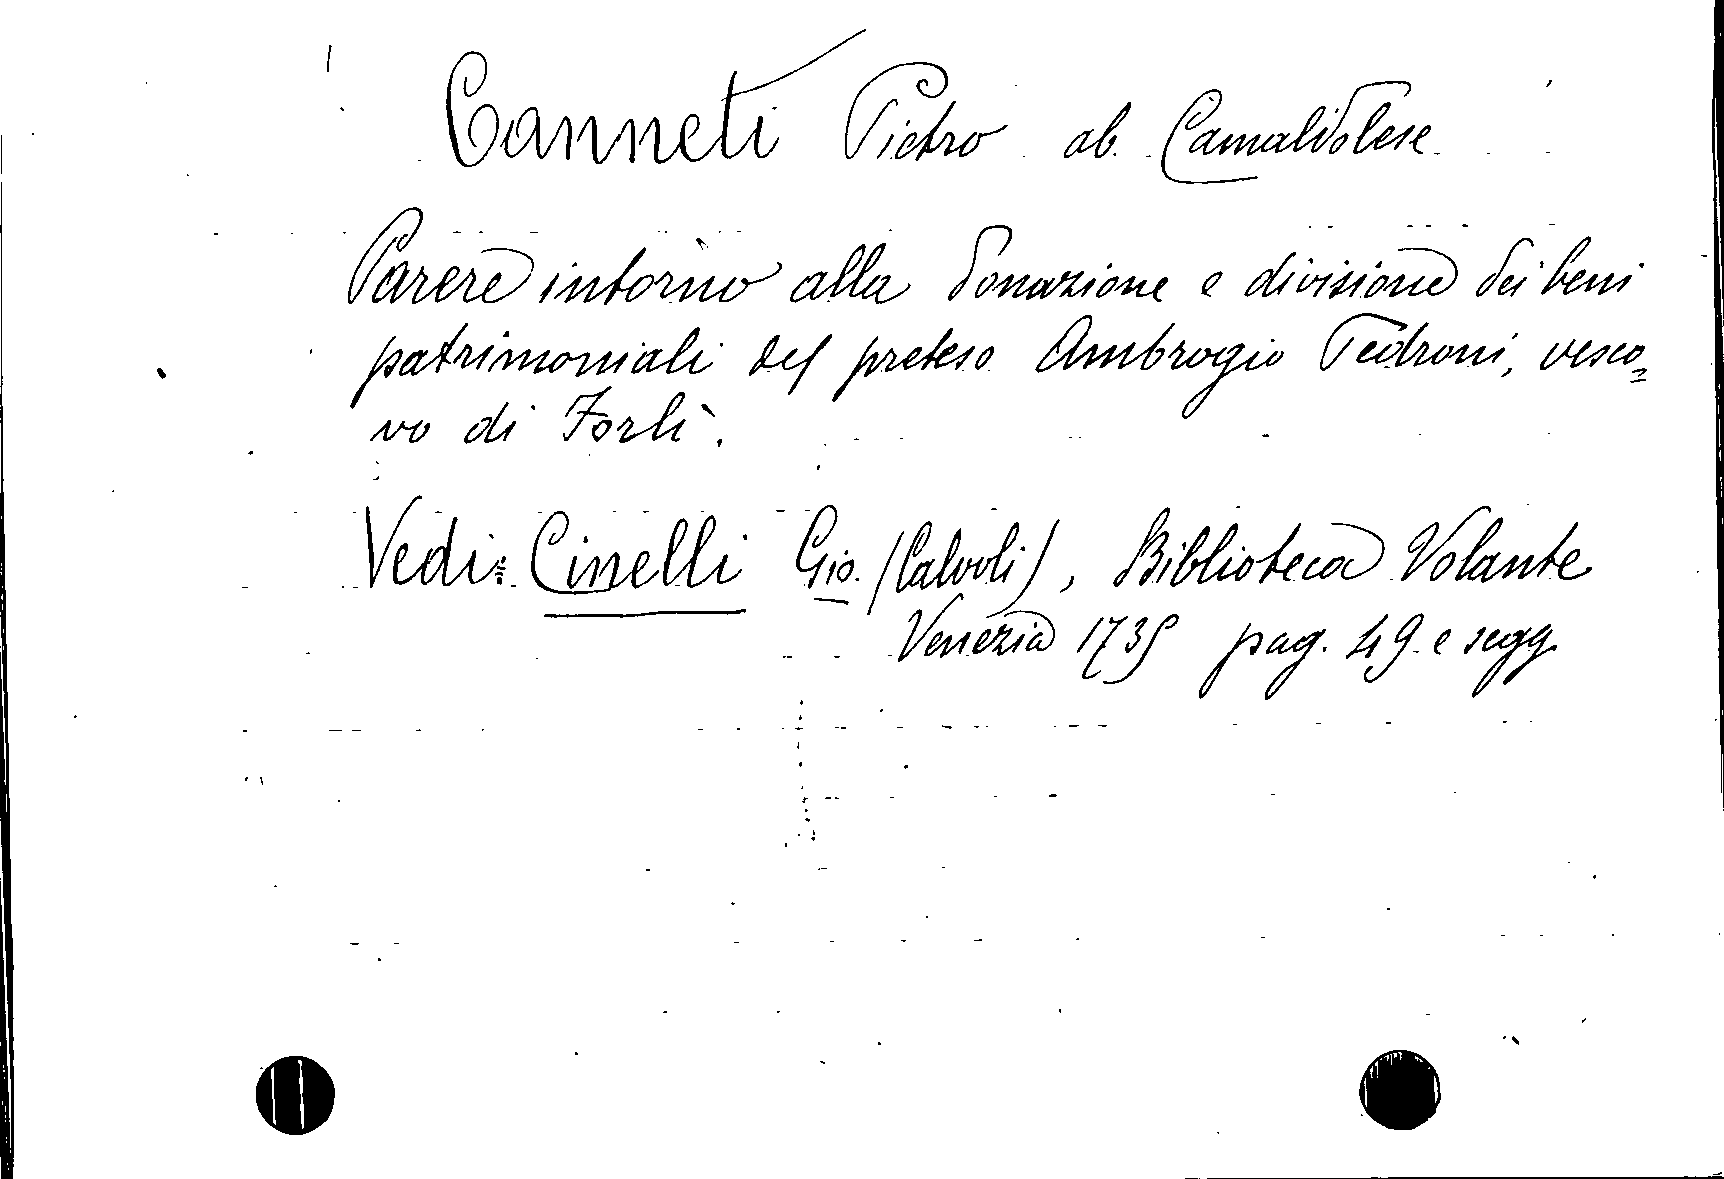 Canneti Pietro ab. Camaldolese
Parere intorno alla donazione e divisione dei beni
patrimoniali del preteso Ambrogio Pedroni, vesco=
vo di Forlì.
Vedi: Cinelli Gio. (Calvoli), Biblioteca Volante
Venezia 1735 pag. 49 e segg.